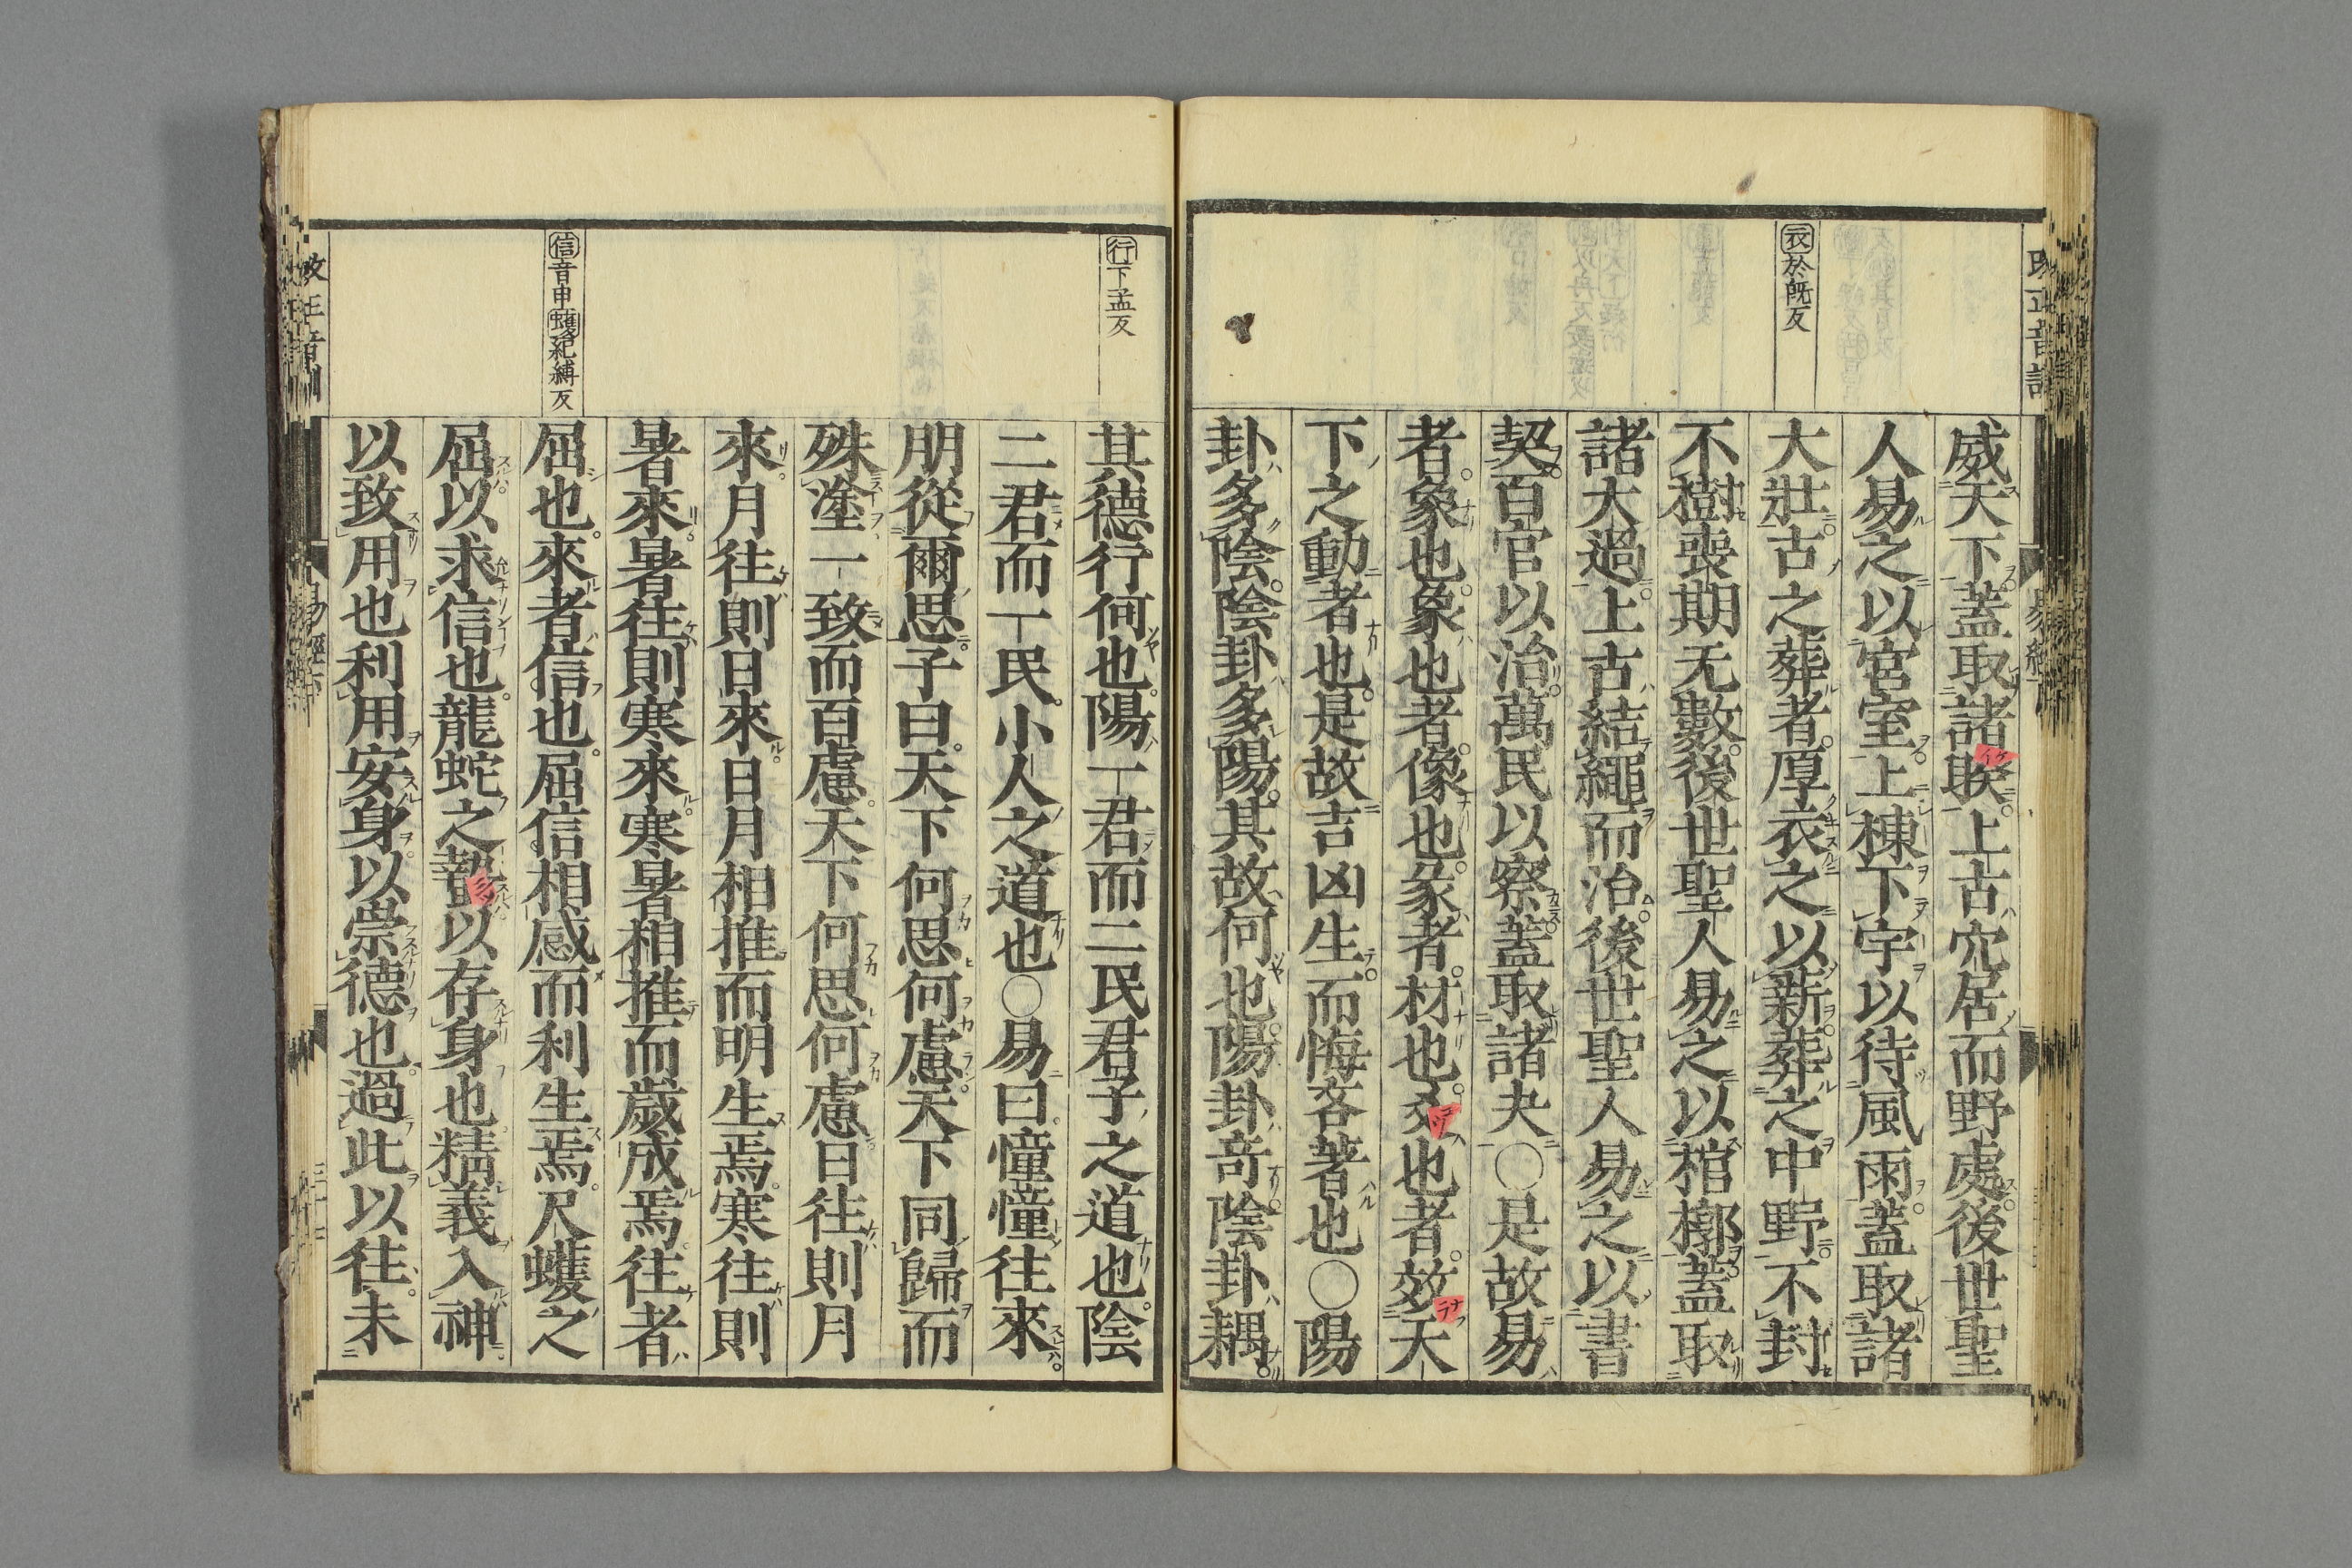 衣於既反
威天下蓋取諸睽上古穴居而野處後世聖
人易之以宮室上棟下宇以待風雨蓋取諸
大壯古之葬者厚衣之以薪葬之中野不封
不樹喪期无數後世聖人易之以棺槨蓋取
諸大過上古結繩而治後世聖人易之以書
契百官以治萬民以察蓋取諸夬○是故易
者象也象也者像也彖者材也爻也者效天
下之動者也是故吉凶生而悔吝著也○陽
卦多陰陰卦多陽其故何也陽卦奇陰卦耦
行下孟反
信音申蠖紀縛反
其德行何也陽一君而二民君子之道也陰
二君而一民小人之道也○易曰憧憧往來
朋從爾思子曰天下何思何慮天下同歸而
殊塗一致而百慮天下何思何慮日往則月
來月往則日來日月相推而明生焉寒往則
暑來暑往則寒來寒暑相推而歲成焉往者
屈也來者信也屈信相感而利生焉尺蠖之
屈以求信也龍蛇之蟄以存身也精義入神
以致用也利用安身以崇德也過此以往未
易經下